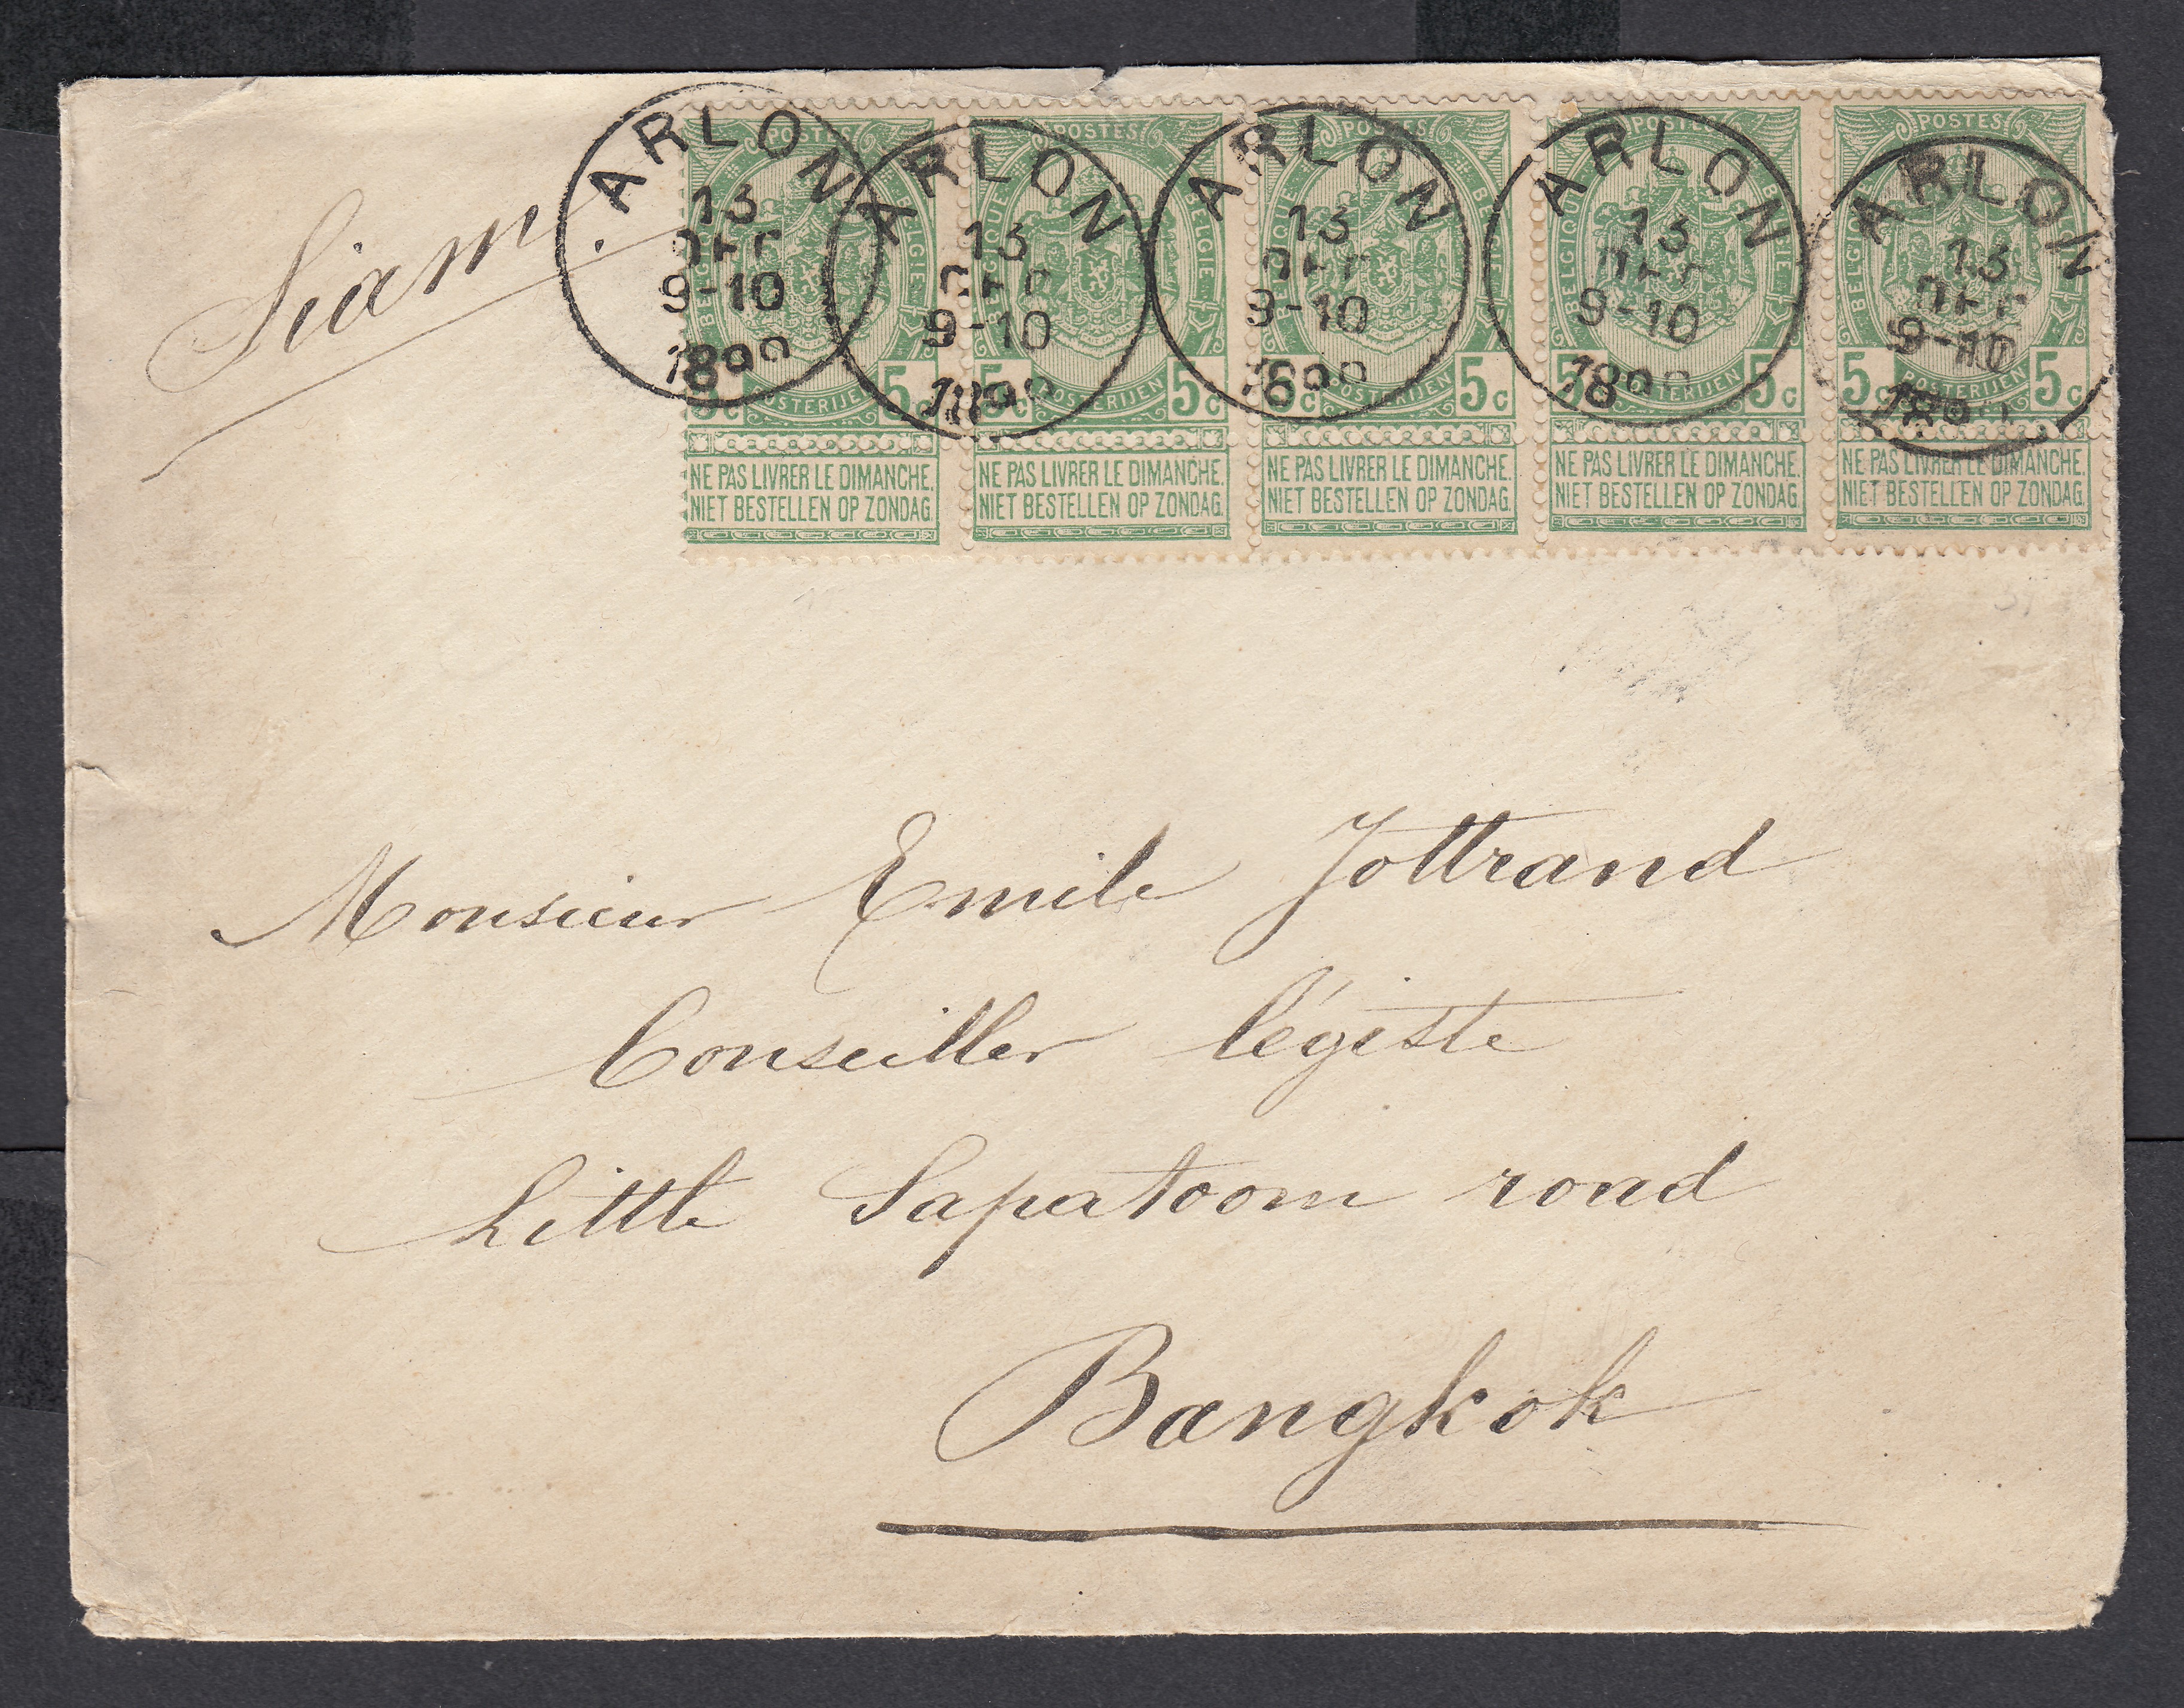 Siam
ARLON
13
DEC
9-10
ARLON
13
DEC
9-10
ARLON
13
DEC
9-10
ARLON
13
DEC
9-10
ARLON
13
DEC
9-10
POSTES
BELGIQUE BELGIE
5c 5c
POSTERIJEN
NE PAS LIVRER LE DIMANCHE.
NIET BESTELLEN OP ZONDAG.
POSTES
BELGIQUE BELGIE
5c 5c
POSTERIJEN
NE PAS LIVRER LE DIMANCHE.
NIET BESTELLEN OP ZONDAG.
POSTES
BELGIQUE BELGIE
5c 5c
POSTERIJEN
NE PAS LIVRER LE DIMANCHE.
NIET BESTELLEN OP ZONDAG.
POSTES
BELGIQUE BELGIE
5c 5c
POSTERIJEN
NE PAS LIVRER LE DIMANCHE.
NIET BESTELLEN OP ZONDAG.
POSTES
BELGIQUE BELGIE
5c 5c
POSTERIJEN
NE PAS LIVRER LE DIMANCHE.
NIET BESTELLEN OP ZONDAG.
Monsieur Emile Jottrand
Conseiller légiste
Little Sapatoom road
Bangkok